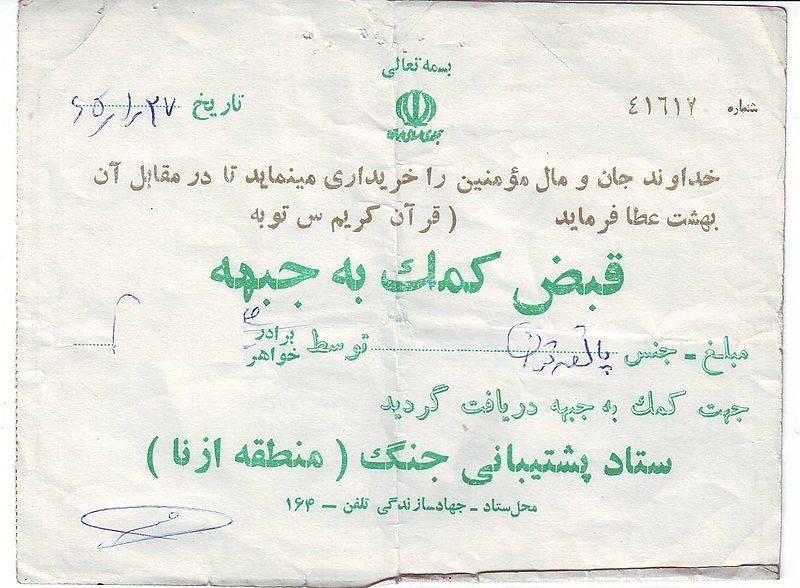 بسمه تعالی
شماره ٤١٦١٧
تاریخ ۲۷/۱/۶۵
جمهوری اسلامی ایران
خداوند جان و مال مؤمنین را خریداری مینماید تا در مقابل آن
بهشت عطا فرماید ( قرآن کریم س توبه
قبض کمك به جبهه
مبلغ ـ جنس توسط برادر خواهر
جهت کمك به جبهه دریافت گردید
ستاد پشتیبانی جنگ ( منطقه ازنا )
محل ستاد ـ جهادسازندگی تلفن – ۱۶۴